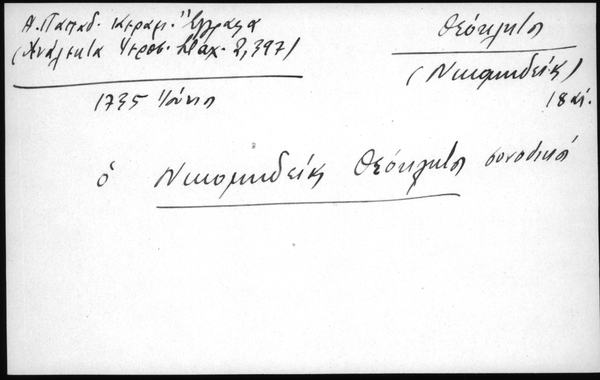 Α. Παπαδ. Κεραμ. "Έγγραφα
(Ανάλεκτα Ιεροσ. Σταχ. 2, 397)
1735 Ιούνιο
Θεόκλητος
(Νικομηδείας)
18 αι.
ὁ Νικομηδείας Θεόκλητος συνοδικός